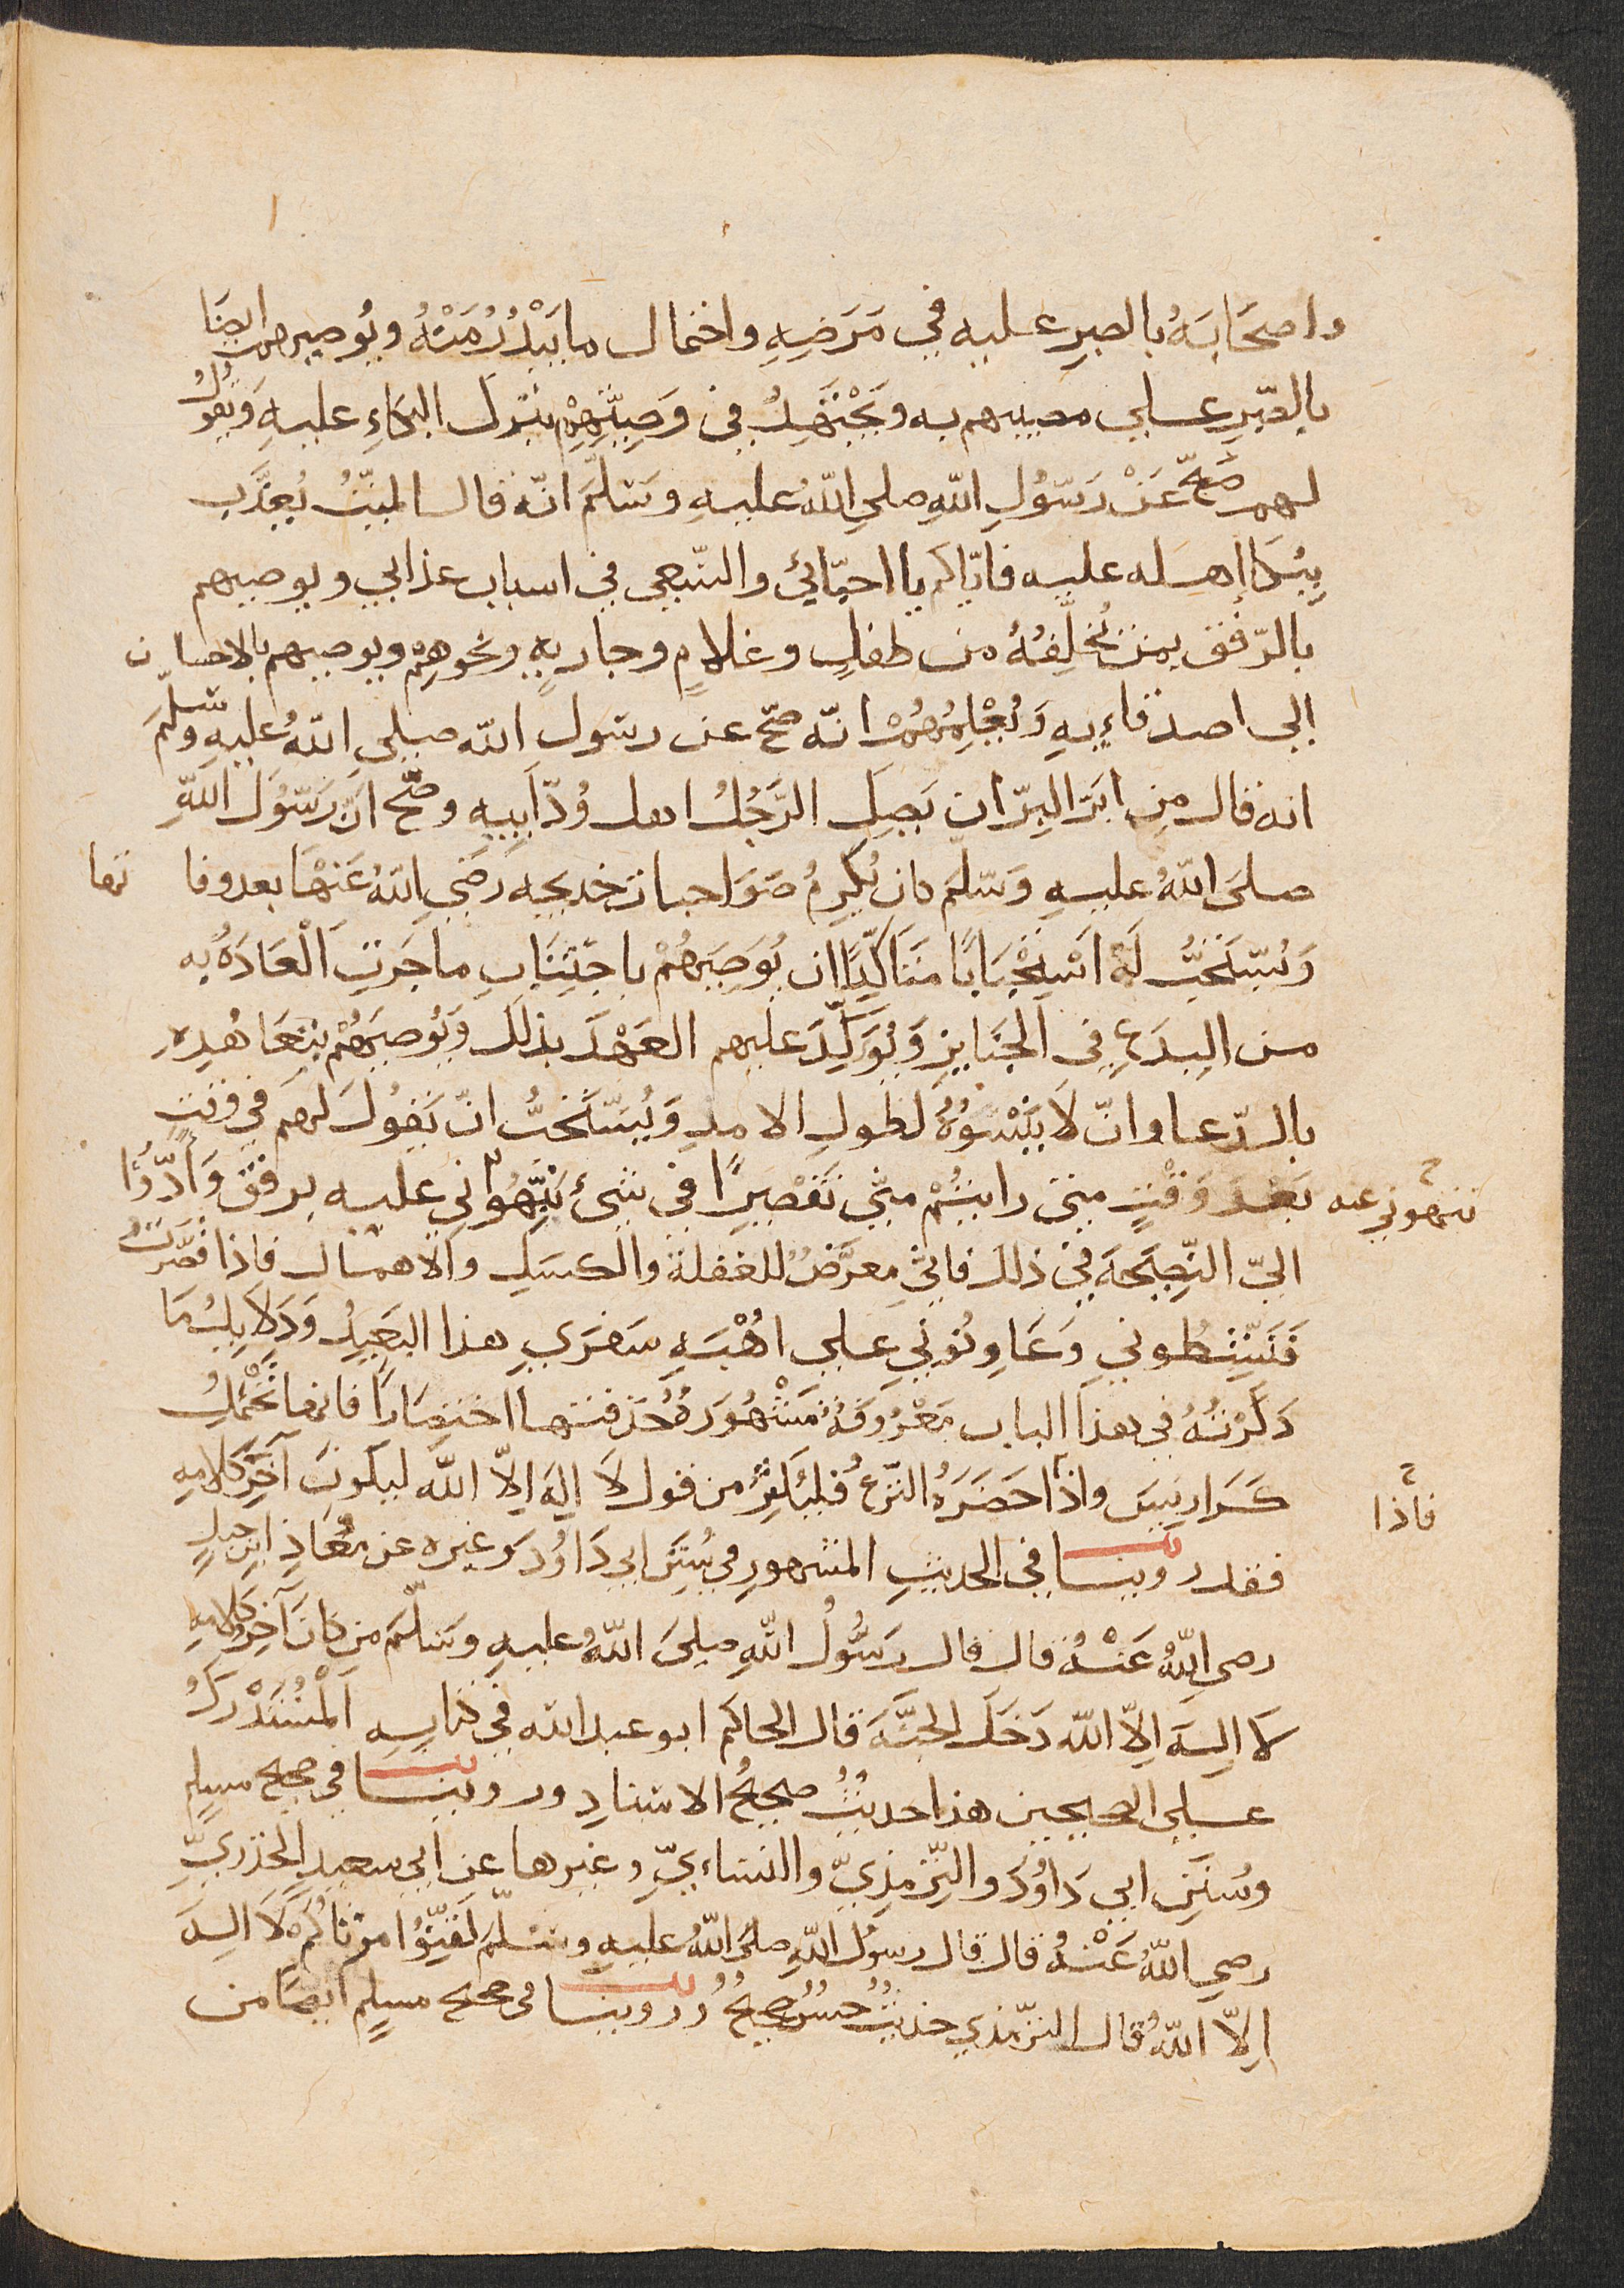 واصحَابَهُ بالصبرِ عليه في مَرَضِهِ واحتمال ما يَبْدُرُ مَنْهُ ويُوصيهم ايضًا
بالصّبرِ على مصيبهم به ويَجْتَهِدُ في وَصِيَّتِهِمْ بترك البكاءِ عليهِ وَيقولُ
لهم صَحَّ عَنْ رَسُولِ اللهِ صلى اللهُ عليهِ وسَلَّمَ انّه قال الميّتُ يُعذَّب
بِبُكَا اهله عليه فايّاكم يا احبّائي والسّعي في اسباب عذابي ويوصيهم
بالرّفق بمن يُخلِّفُهُ من طفلٍ وغلامٍ وجاريةٍ ونحوهم ويوصيهم بالاحسان
الى اصدقاءِيهِ وَيُعْلِمُهُمْ انّه صحّ عن رسول الله صلى اللهُ عليهِ وسَلّمَ
انه قال من ابَرّ البِرّ ان يَصِلَ الرَّجُلُ اهل وُدّ ابيهِ وصَحّ انّ رَسُولَ اللهِ
صلىَ اللهُ عليهِ وَسَلّمَ كان يُكرِمُ صَوَاحبات خديجه رَضيَ اللهُ عَنْهَا بعد وفاتها
وَيُسْتَحَبُّ لَهُ اسْتِحْبَابًا مَتَاكِّدًا ان يُوصِيَهُمْ باجتِنَابِ ما جَرَتِ الْعَادَةُ به
من البدَعِ في الجَنايزِ وَيُؤكِّدَ عليهم العَهْدَ بذلك وَيُوصيَهُمْ بتعَاهُدِهِ
بالدّعا وان لَا يَنْسَوْهُ لطولِ الامدِ وَيُسْتَحَبُّ انّ يَقولَ لهم في وَقتٍ
بَعْدَ وَقْتٍ متى رايتُمْ منّي تَقْصِيرًا في شيْءٍ نَبِّهُواني عليه برفق وَادُّوا
تنبهوني عنه
اليّ النّصِيحَةَ في ذلك فانّي معرَّضٌ للغفلة والكسَلِ والاهمال فاذا قصَّرتُ
فَنَشِّطُوني وَعَاوِنُوني على اهْبَةِ سَفرَي هذا البَعيدِ وَدَلايلُ مَا
ذَكَرْتُهُ في هذا الباب مَعْرُوفَةٌ مَشْهُورَةٌ حَذفتها اختصَارًا فانها تَحْتَمِلُ
كَرَاريسَ واذا حَضَرَهُ النَّزعُ فليُكثِرْ من قول لَا الهَ الّا اللهُ ليكونَ آخِرَ كلامِهِ
فاذا
فقد روينا في الحديثِ المشهورِ في سُنَنِ ابي دَاوُدَ وغيره عن مُعَاذِ ابن جبلٍ
رضي اللهُ عَنْهُ قال قال رسُولُ اللهِ صلىَ اللهُ عليهِ وسَلّمَ من كانَ آخِرُ كلامِهِ
لَا الهَ الّا اللهُ دَخَلَ الجنّةَ قال الحاكم ابو عبد الله في كتابه المُسْتَدْرَكُ
على الصحيحين هذا حديثٌ صحيحُ الاسنادِ وروينا في صحيح مسلمٍ
وسُنَنِ ابي دَاوُدَ والتّرْمذِيّ والنساءيّ وغيرها عن ابي سعيدٍ الخدريِّ
رضي اللهُ عَنْهُ قال قال رسول اللهِ صلىَ اللهُ عليهِ وسلّم لَقِّنُوا موتاكُمْ لَا الهَ
الّا اللهُ قال الترمذي حديثٌ حسنٌ صحيحٌ وروينا في صحيح مسلمٍ ايضًا من